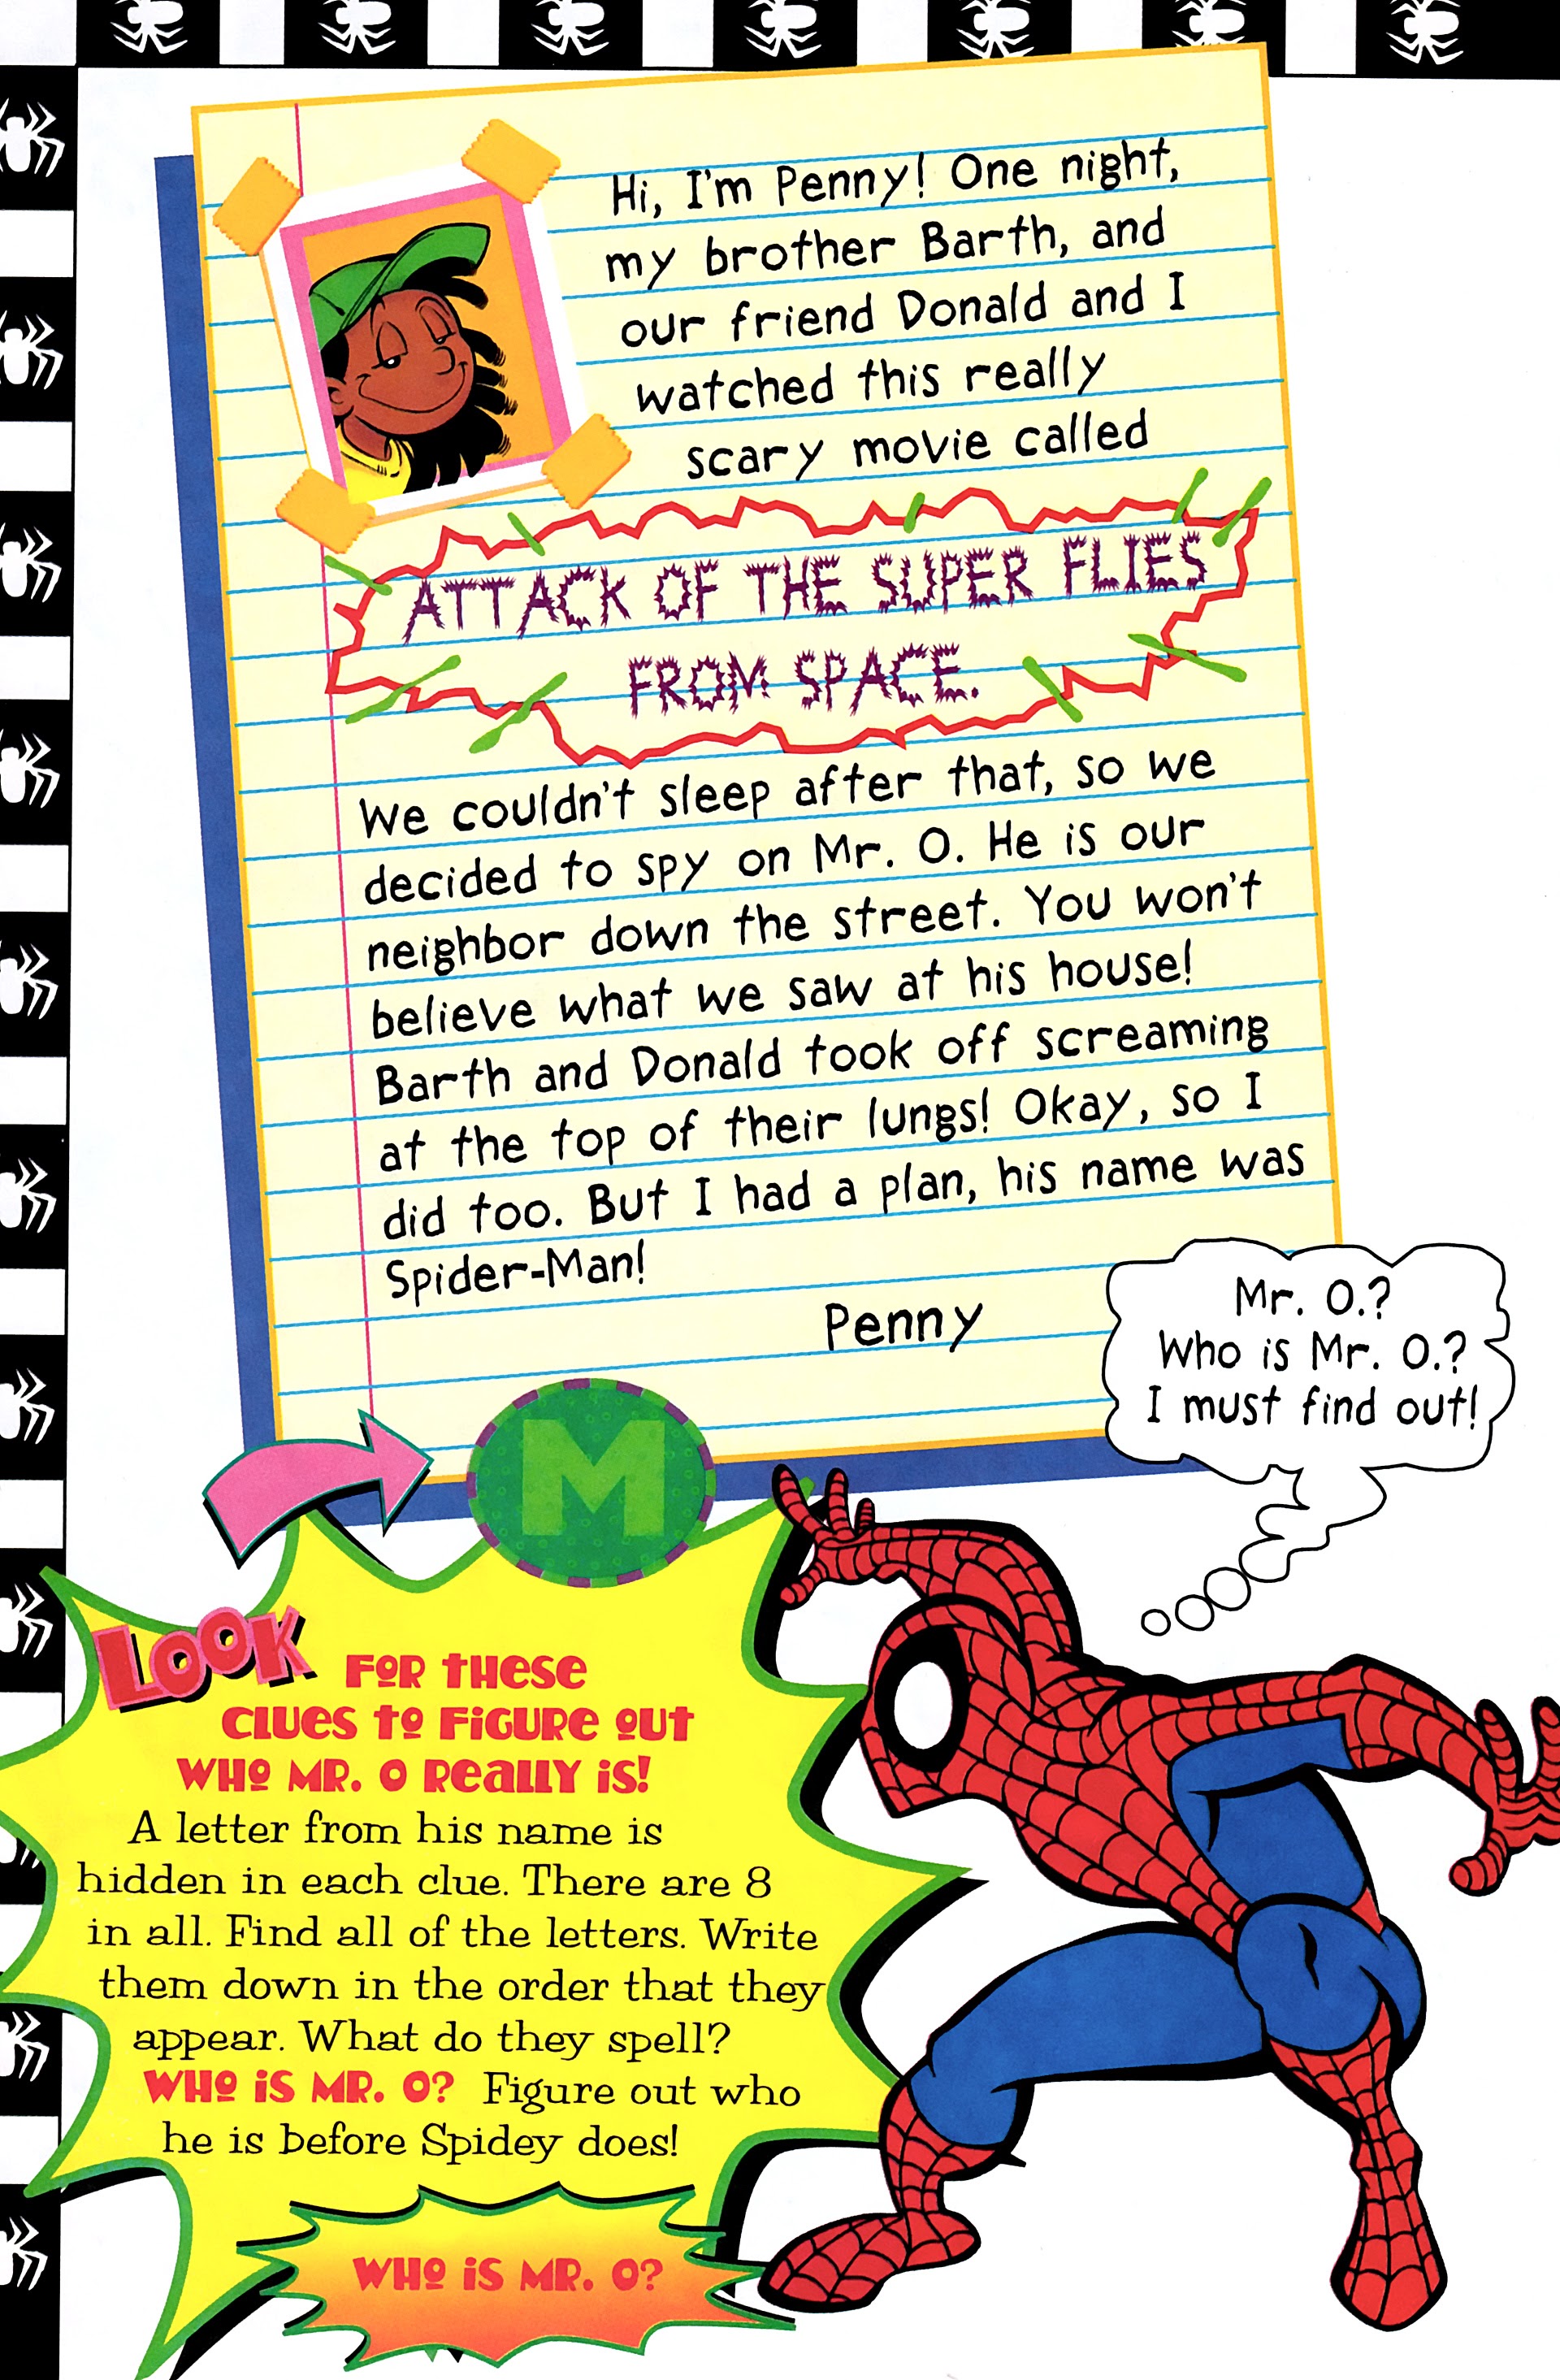 Hi, I'm Penny! One night,
my brother Barth, and
our friend Donald and I
watched this really
scary movie called
ATTACK OF THE SUPER FLIES
FROM SPACE.
We couldn't sleep after that, so we
decided to spy on Mr. O. He is our
neighbor down the street. You won't
believe what we saw at his house!
Barth and Donald took off screaming
at the top of their lungs! Okay, so I
did too. But I had a plan, his name was
Spider-Man!
Penny
Mr. O.?
Who is Mr. O.?
I must find out!
M
LOOK FOR THESE
CLUES TO FIGURE OUT
WHO MR. O REALLY IS!
A letter from his name is
hidden in each clue. There are 8
in all. Find all of the letters. Write
them down in the order that they
appear. What do they spell?
WHO IS MR. O? Figure out who
he is before Spidey does!
WHO IS MR. O?